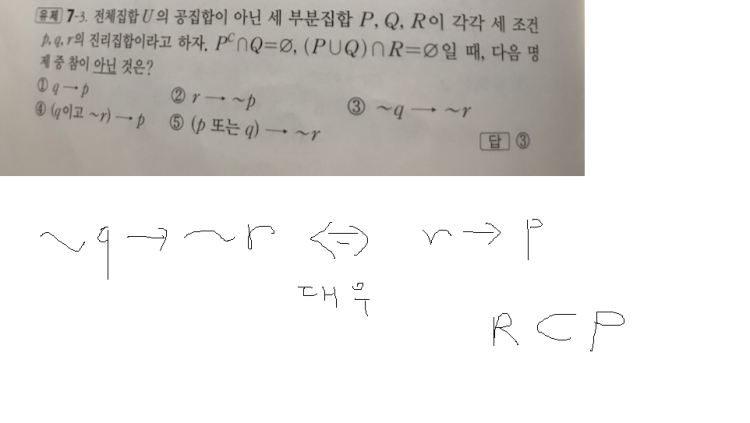 유제 7-3. 전체집합 U의 공집합이 아닌 세 부분집합 P, Q, R이 각각 세 조건
p, q, r의 진리집합이라고 하자. P^C∩Q=∅, (P∪Q)∩R=∅일 때, 다음 명
제 중 참이 아닌 것은?
① q → p ② r → ~p ③ ~q → ~r
④ (q이고 ~r) → p ⑤ (p 또는 q) → ~r
답 ③
~q → ~r ⇔ r → p
대우
R ⊂ P